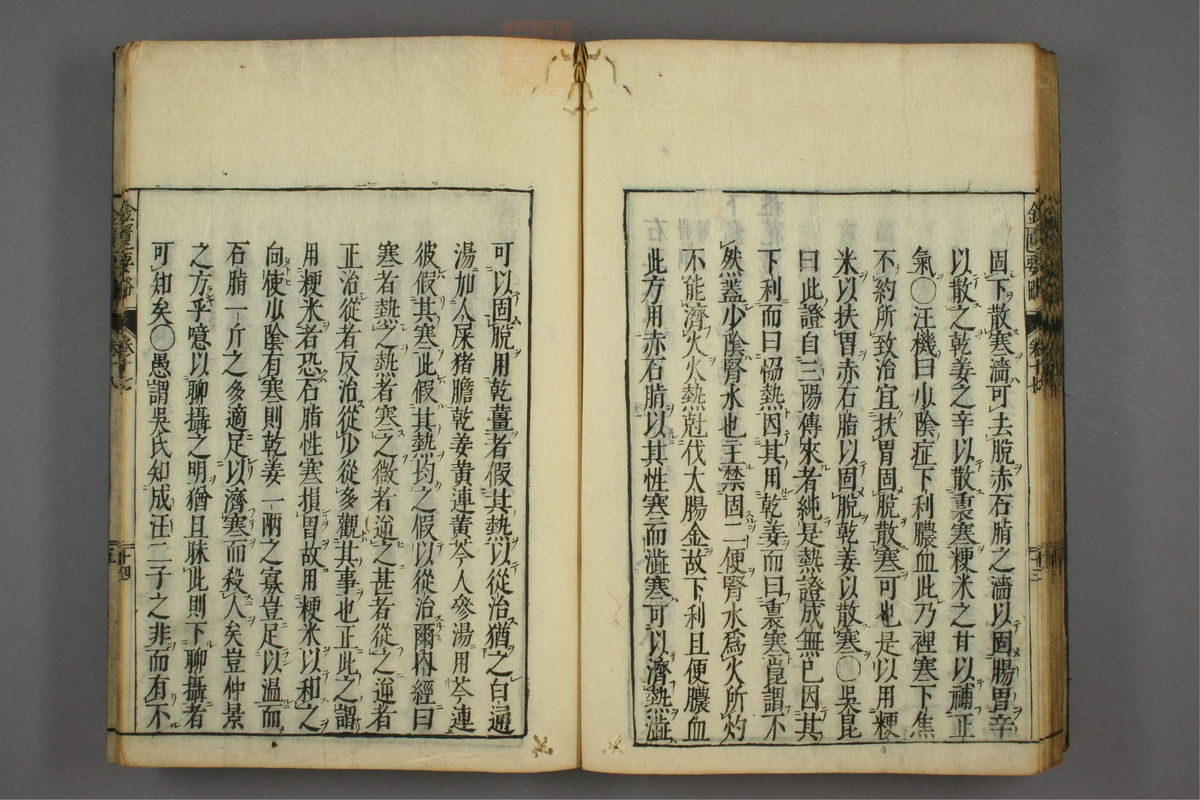 固下散寒濇可去脫赤石脂之濇以固腸胃辛
以散之乾姜之辛以散裏寒粳米之甘以補正
氣○汪機曰少陰症下利膿血此乃裡寒下焦
不約所致治宜扶胃固脫散寒可也是以用粳
米以扶胃赤石脂以固脫乾姜以散寒○吳昆
曰此證自三陽傳來者純是熱證成無已因其
下利而曰恊熱因其用乾姜而曰裏寒崑謂不
然蓋少陰腎水也主禁固二便腎水為火所灼
不能濟火火熱尅伐大腸金故下利且便膿血
此方用赤石脂以其性寒而澁寒可以濟熱澁
可以固脫用乾薑者假其熱以從治猶之白通
湯加人尿猪膽乾姜黃連黃芩人參湯用芩連
彼假其寒此假其熱均之假以從治爾內經曰
寒者熱之熱者寒之微者逆之甚者從之逆者
正治從者反治從少從多觀其事也正此之謂
用粳米者恐石脂性寒損胃故用粳米以和之
向使少陰有寒則乾姜一兩之寡豈足以溫而
石脂一斤之多適足以濟寒而殺人矣豈仲景
之方乎噫以聊攝之明猶且昧此則下聊攝者
可知矣○愚謂吳氏知成汪二子之非而有不